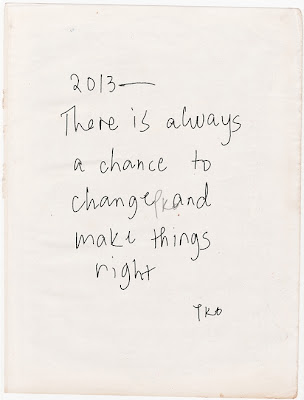 2013—
There is always
a chance to
change and
make things
right
TKO